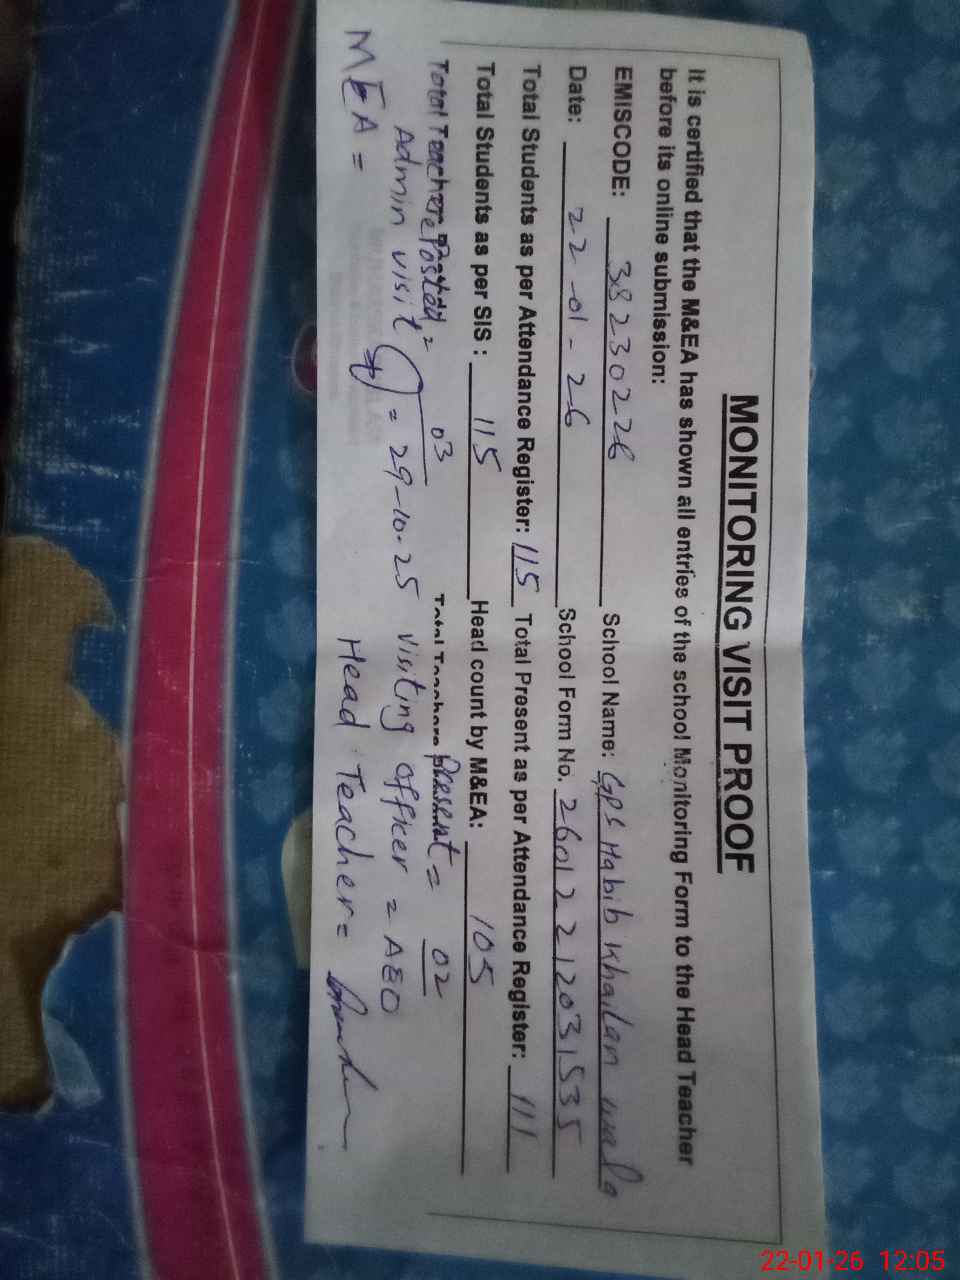 MONITORING VISIT PROOF
It is certified that the M&EA has shown all entries of the school Monitoring Form to the Head Teacher
before its online submission:
EMISCODE: 38230226 School Name: GPS Habib Khailan wala
Date: 22-01-26 School Form No. 26012212031535
Total Students as per Attendance Register: 115 Total Present as per Attendance Register: 111
Total Students as per SIS : 115 Head count by M&EA: 105
Total Teachers Posted = 03 Total Teachers present = 02
Admin visit = 29-10-25 visiting officer = AEO
MEA = Head Teacher =
22-01-26 12:05